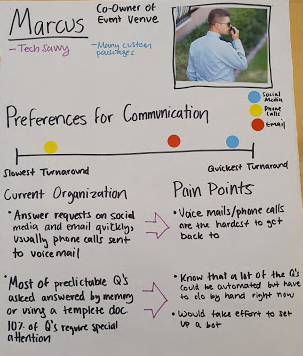 Marcus
Co-Owner of
Event Venue
- Tech Savvy
- Many custom
packages
Social
Media
Phone
Calls
Email
Preferences for Communication
Slowest Turnaround
Quickest Turnaround
Current Organization
• Answer requests on social
media and email quickly,
usually phone calls sent
to voicemail
• Most of predictable Q's
asked answered by memory
or using a template doc.
10% of Q's require special
attention
Pain Points
• Voice mails/phone calls
are the hardest to get
back to
• Know that a lot of the Q's
could be automated but have
to do by hand right now
• Would take effort to set
up a bot